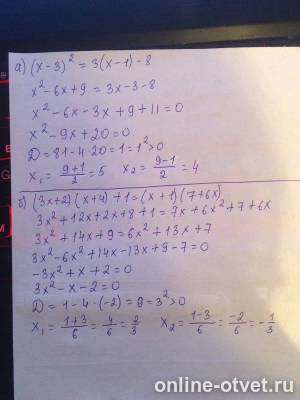 а) (x-3)² = 3(x-1)-8
x²-6x+9 = 3x-3-8
x²-6x-3x+9+11=0
x²-9x+20=0
D=81-4·20=1=1²>0
x₁=(9+1)/2=5 x₂=(9-1)/2=4
б) (3x+2)(x+4)+1=(x+1)(7+6x)
3x²+12x+2x+8+1=7x+6x²+7+6x
3x²+14x+9=6x²+13x+7
3x²-6x²+14x-13x+9-7=0
-3x²+x+2=0
3x²-x-2=0
D=1-4·(-2)=9=3²>0
x₁=(1+3)/6=4/6=2/3 x₂=(1-3)/6=-2/6=-1/3
online-otvet.ru